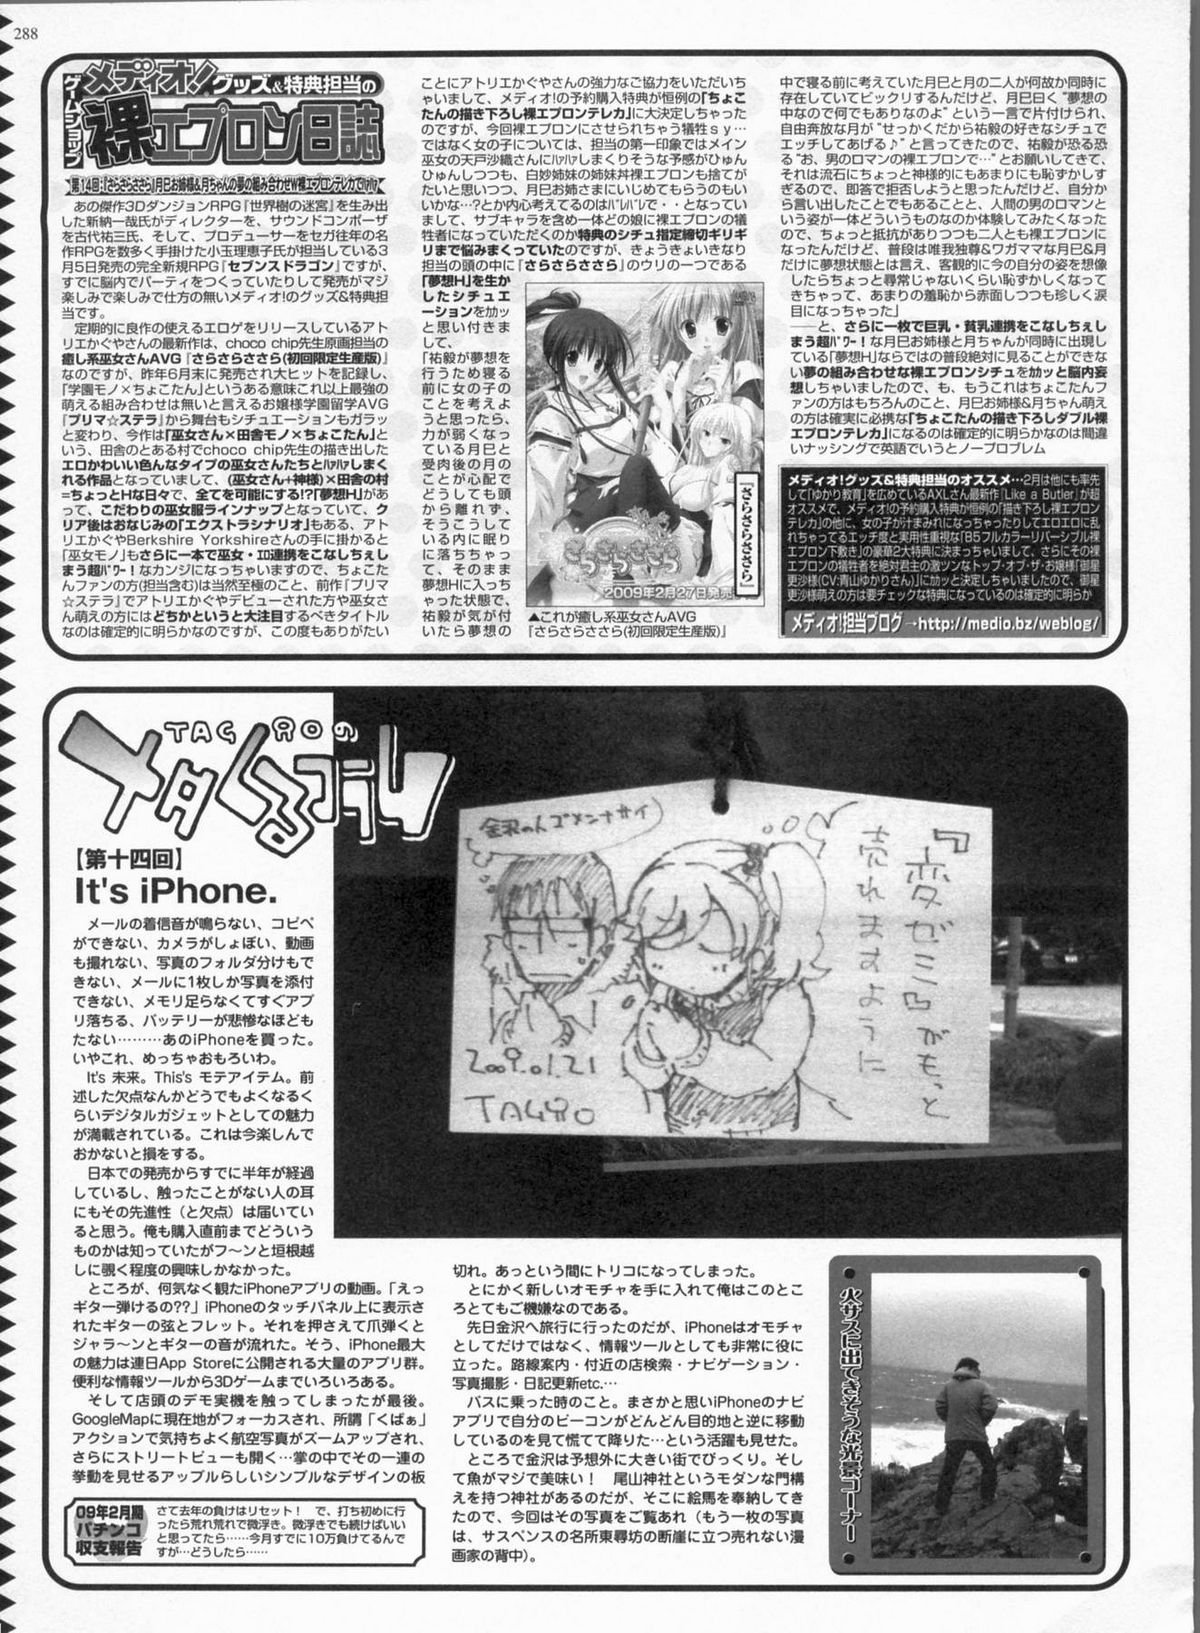 288
ゲームショップ
メディオ!グッズ&特典担当の
裸エプロン日誌
第14回:『さらさらささら』月巳お姉様&月ちゃんの夢の組み合わせW裸エプロンテレカでハァハァ
あの傑作3Dダンジョン RPG『世界樹の迷宮』を生み出
した新納一哉氏がディレクターを、サウンドコンポーザ
を古代祐三氏、そして、プロデューサーをセガ往年の名
作RPGを数多く手掛けた小玉理恵子氏が担当している3
月5日発売の完全新規RPG『セブンスドラゴン』ですが、
すでに脳内でパーティをつくっていたりして発売がマジ
楽しみで楽しみで仕方の無いメディオ!のグッズ&特典担
当です。
定期的に良作の使えるエロゲをリリースしているアト
リエかぐやさんの最新作は、choco chip先生原画担当の
癒し系巫女さんAVG『さらさらささら(初回限定生産版)』
なのですが、昨年6月末に発売され大ヒットを記録し、
「学園モノ×ちょこたん」というある意味これ以上最強の
萌える組み合わせは無いと言えるお嬢様学園留学AVG
『プリマ☆ステラ』から舞台もシチュエーションもガラッ
と変わり、今作は「巫女さん×田舎モノ×ちょこたん」と
いう、田舎のとある村でchoco chip先生の描き出した
エロかわいい色んなタイプの巫女さんたちとハァハァしまく
れる作品となっていまして、(巫女さん+神様)×田舎の村
=ちょっとHな日々で、全てを可能にする!?「夢想H」があ
って、こだわりの巫女服ラインナップとなっていて、ク
リア後はおなじみの「エクストラシナリオ」もある、アト
リエかぐやBerkshire Yorkshireさんの手に掛かると
「巫女モノ」もさらに一本で巫女・エロ連携をこなしちぇし
まう超パワー!なカンジになっていますので、ちょこた
んファンの方(担当含む)は当然至極のこと、前作『プリマ
☆ステラ』でアトリエかぐやデビューされた方や巫女さ
ん萌えの方にはどちかというと大注目するべきタイトル
なのは確定的に明らかなのですが、この度もありがたい
ことにアトリエかぐやさんの強力なご協力をいただいち
ゃいまして、メディオ!の予約購入特典が恒例の「ちょこ
たんの描き下ろし裸エプロンテレカ」に大決定しちゃった
のですが、今回裸エプロンにさせられちゃう犠牲sy…
ではなく女の子については、担当の第一印象ではメイン
巫女の天戸沙織さんにハァハァしまくりそうな予感がひゅん
ひゅんしつつも、白妙姉妹の姉妹丼裸エプロンも捨てが
たいと思いつつ、月巳お姉さまにいじめてもらうのもい
いかな…?とか内心考えてるのはバレバレで・・となってい
まして、サブキャラを含め一体どの娘に裸エプロンの犠
牲者になっていただくのか特典のシチュ指定締切ギリギ
リまで悩みまくっていたのですが、きょうきょいきなり
担当の頭の中に『さらさらささら』のウリの一つである
「夢想H」を生か
したシチュエ
ーションをカッ
と思い付きま
して、
「祐毅が夢想を
行うため寝る
前に女の子の
ことを考えよ
うと思ったら、
力が弱くなっ
ている月巳と
受肉後の月の
ことが心配で
どうしても頭
から離れず、
そうこうして
いる内に眠り
に落ちちゃっ
て、そのまま
夢想Hに入っち
ゃった状態で、
祐毅が気が付
いたら夢想の
さらさらささら
2009年2月27日発売
『さらさらささら』
▲これが癒し系巫女さんAVG
『さらさらささら(初回限定生産版)』
中で寝る前に考えていた月巳と月の二人が何故か同時に
存在していてビックリするんだけど、月巳曰く“夢想の
中なので何でもありなのよ”という一言で片付けられ、
自由奔放な月が“せっかくだから祐毅の好きなシチュで
エッチしてあげる♪”と言ってきたので、祐毅が恐る恐
る“お、男のロマンの裸エプロンで…”とお願いしてきて、
それは流石にちょっと神様的にもあまりにも恥ずかしす
ぎるので、即答で拒否しようと思ったんだけど、自分か
ら言い出したことでもあることと、人間の男のロマンと
いう姿が一体どういうものなのか体験してみたくなった
ので、ちょっと抵抗がありつつも二人とも裸エプロンに
なったんだけど、普段は唯我独尊&ワガママな月巳&月
だけに夢想状態とは言え、客観的に今の自分の姿を想像
したらちょっと尋常じゃないくらい恥ずかしくなって
きちゃって、あまりの羞恥から赤面しつつも珍しく涙
目になっちゃった」
――と、さらに一枚で巨乳・貧乳連携をこなしちぇし
まう超パワー!な月巳お姉様と月ちゃんが同時に出現し
ている「夢想H」ならではの普段絶対に見ることができな
い夢の組み合わせな裸エプロンシチュをカッと脳内妄
想しちゃいましたので、も、もうこれはちょこたんファ
ンの方はもちろんのこと、月巳お姉様&月ちゃん萌え
の方は確実に必携な「ちょこたんの描き下ろしダブル裸
エプロンテレカ」になるのは確定的に明らかなのは間違
いナッシングで英語でいうとノープロブレム
メディオ!グッズ&特典担当のオススメ…2月は他にも率先
して「ゆかり教育」を広めているAXLさん最新作『Like a Butler』が超
オススメで、メディオ!の予約購入特典が恒例の「描き下ろし裸エプロン
テレカ」の他に、女の子が汁まみれになっちゃったりしてエロエロに乱
れちゃってるエッチ度と実用性重視な「B5フルカラーリバーシブル裸
エプロン下敷き」の豪華2大特典に決まっちゃいまして、さらにその裸
エプロンの犠牲者を絶対君主の激ツンなトップ・オブ・ザ・お嬢様「御星
更沙様(CV:青山ゆかりさん)」にカッと決定しちゃいましたので、御星
更沙様萌えの方は要チェックな特典になっているのは確定的に明らか
メディオ!担当ブログ→http://medio.bz/weblog/
TAGROの
ナメタくるコラム
【第十四回】
It's iPhone.
メールの着信音が鳴らない、コピペ
ができない、カメラがしょぼい、動画
も撮れない、写真のフォルダ分けもで
きない、メールに1枚しか写真を添付
できない、メモリ足らなくてすぐアプ
リ落ちる、バッテリーが悲惨なほども
たない………あのiPhoneを買った。
いやこれ、めっちゃおもろいわ。
It's 未来。This's モテアイテム。前
述した欠点なんかどうでもよくなるく
らいデジタルガジェットとしての魅力
が満載されている。これは今楽しんで
おかないと損をする。
日本での発売からすでに半年が経過
しているし、触ったことがない人の耳
にもその先進性（と欠点）は届いてい
ると思う。俺も購入直前までどういう
ものかは知っていたがフ〜ンと垣根越
しに覗く程度の興味しかなかった。
ところが、何気なく観たiPhoneアプリの動画。「えっ
ギター弾けるの??」iPhoneのタッチパネル上に表示さ
れたギターの弦とフレット。それを押さえて爪弾くと
ジャラ〜ンとギターの音が流れた。そう、iPhone最大
の魅力は連日App Storeに公開される大量のアプリ群。
便利な情報ツールから3Dゲームまでいろいろある。
そして店頭のデモ実機を触ってしまったが最後。
GoogleMapに現在地がフォーカスされ、所謂「くぱぁ」
アクションで気持ちよく航空写真がズームアップされ、
さらにストリートビューも開く…掌の中でその一連の
挙動を見せるアップルらしいシンプルなデザインの板
09年2月期
パチンコ
収支報告
さて去年の負けはリセット！　で、打ち初めに行
ったら荒れ荒れで微浮き。微浮きでも続けばいい
と思ってたら……今月すでに10万負けてるんで
すが…どうしたら……
金沢の人ゴメンナサイ
『変ゼミ』がもっと
売れますように
2009.01.21
TAGRO
切れ。あっという間にトリコになってしまった。
とにかく新しいオモチャを手に入れて俺はこのとこ
ろとてもご機嫌なのである。
先日金沢へ旅行に行ったのだが、iPhoneはオモチャ
としてだけではなく、情報ツールとしても非常に役に
立った。路線案内・付近の店検索・ナビゲーション・
写真撮影・日記更新etc.…
バスに乗った時のこと。まさかと思いiPhoneのナビ
アプリで自分のビーコンがどんどん目的地と逆に移動
しているのを見て慌てて降りた…という活躍も見せた。
ところで金沢は予想外に大きい街でびっくり。そし
て魚がマジで美味い！　尾山神社というモダンな門構
えを持つ神社があるのだが、そこに絵馬を奉納してき
たので、今回はその写真をご覧あれ（もう一枚の写真
は、サスペンスの名所東尋坊の断崖に立つ売れない漫
画家の背中）。
火サスに出てきそうな光景コーナー